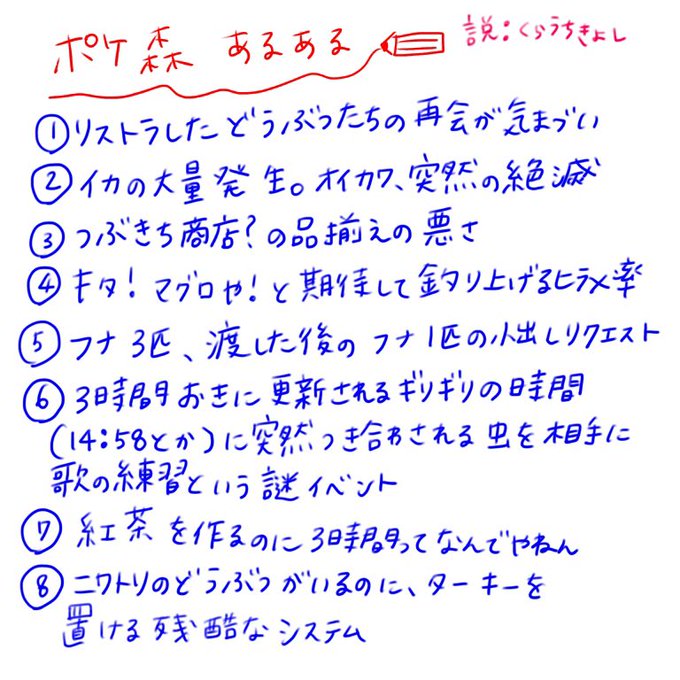 ポケ森 あるある
説:くらうちきよし
①リストラしたどうぶつたちの再会が気まづい
②イカの大量発生。オイカワ、突然の絶滅
③つぶきち商店?の品揃えの悪さ
④キタ!マグロや!と期待して釣り上げるヒラメ率
⑤フナ3匹、渡した後のフナ1匹の小出しリクエスト
⑥3時間おきに更新されるギリギリの時間
(14:58とか)に突然つき合わされる虫を相手に
歌の練習という謎イベント
⑦紅茶を作るのに3時間ってなんでやねん
⑧ニワトリのどうぶつがいるのに、ターキーを
置ける残酷なシステム